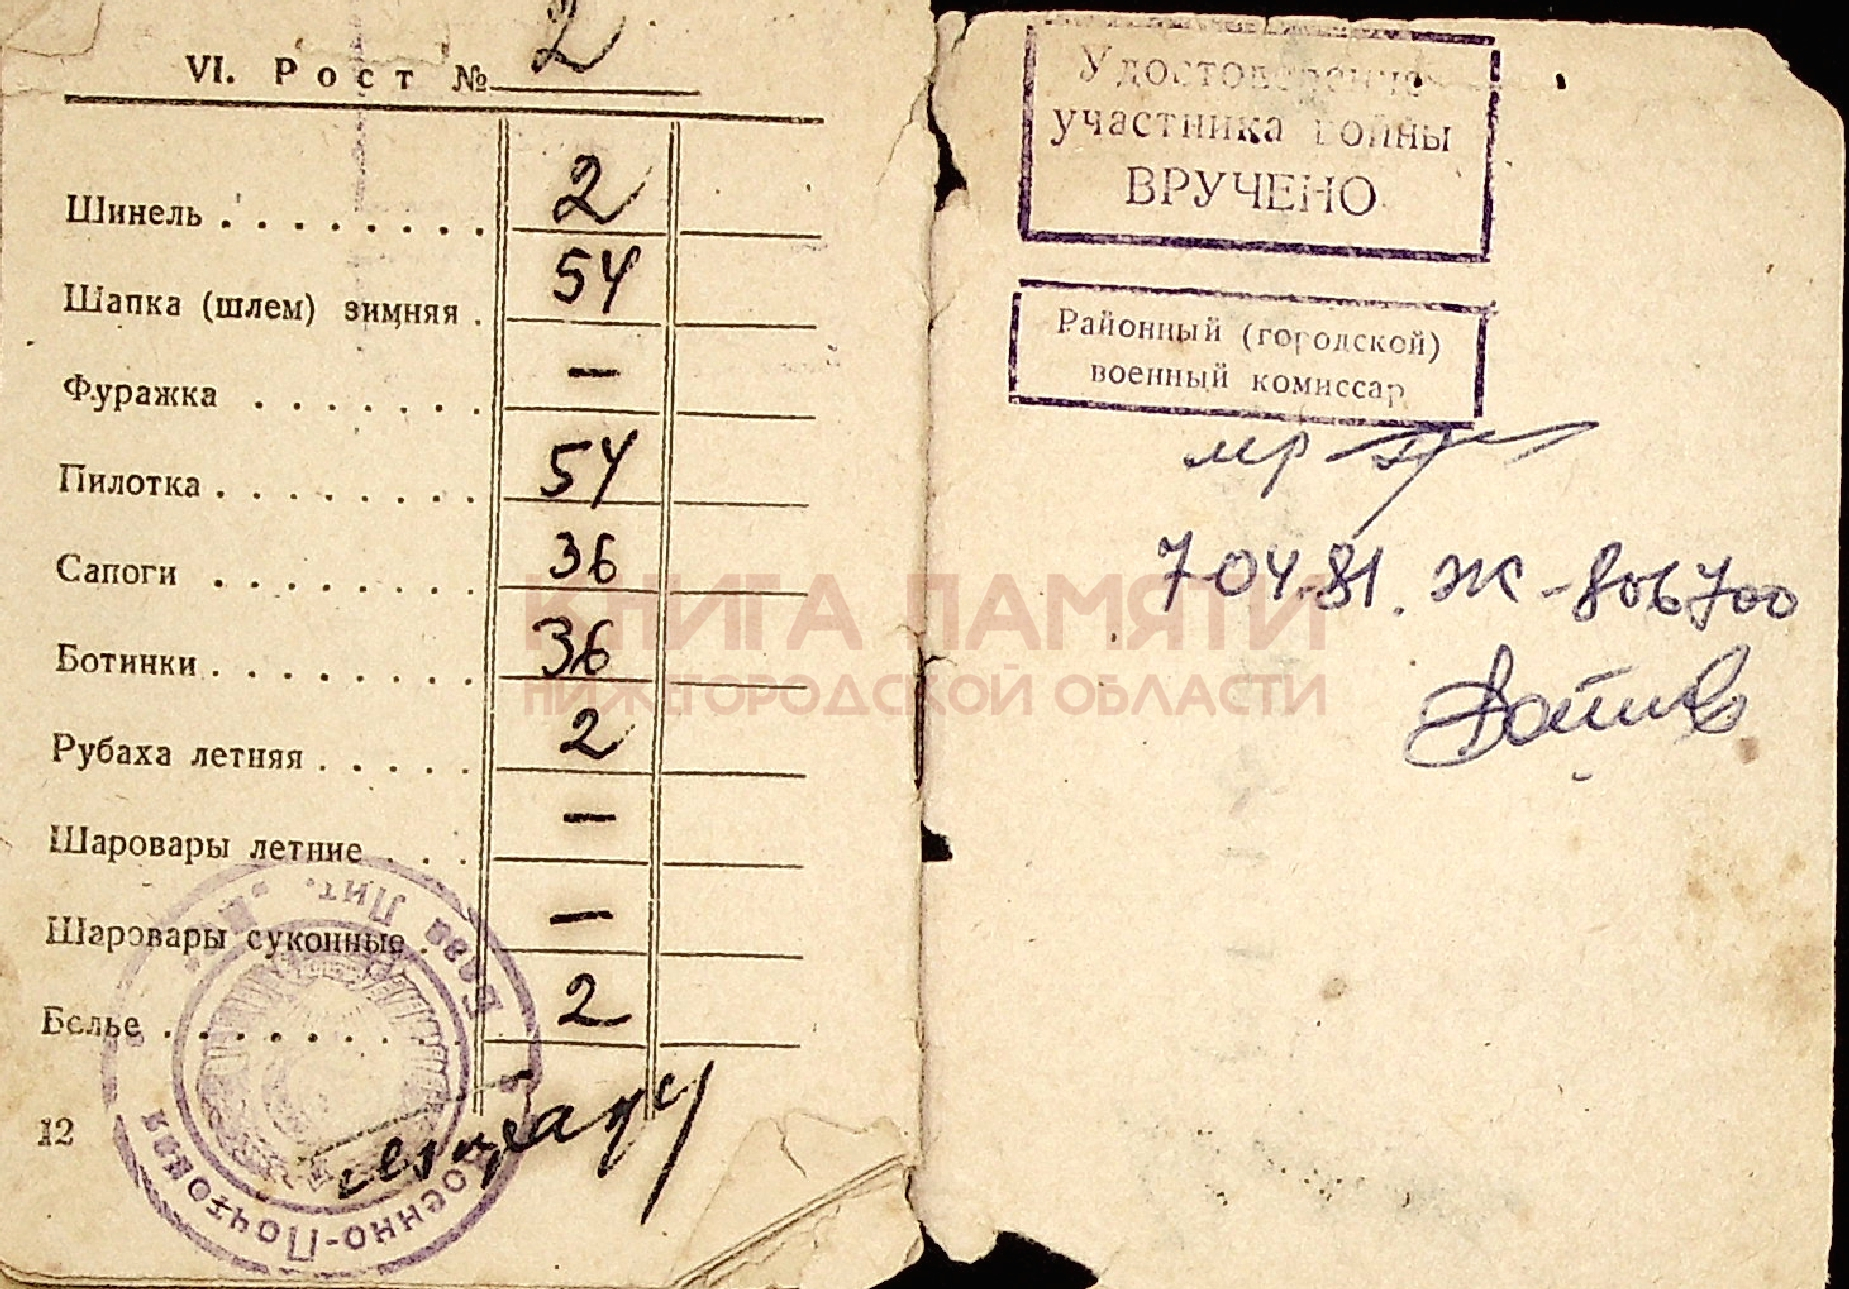 VI. Рост № 2
Шинель . . . . . . . . 2
Шапка (шлем) зимняя . 54
Фуражка . . . . . . . —
Пилотка . . . . . . . . 54
Сапоги . . . . . . . . 36
Ботинки . . . . . . . . 36
Рубаха летняя . . . . . 2
Шаровары летние . . . —
Шаровары суконные . —
Белье . . . . . . . . 2
12
Военно-Почтовая База Лит.
Удостоверение
участника войны
ВРУЧЕНО
Районный (городской)
военный комиссар
7-04-81. Ж-806700
КНИГА ПАМЯТИ
НИЖЕГОРОДСКОЙ ОБЛАСТИ